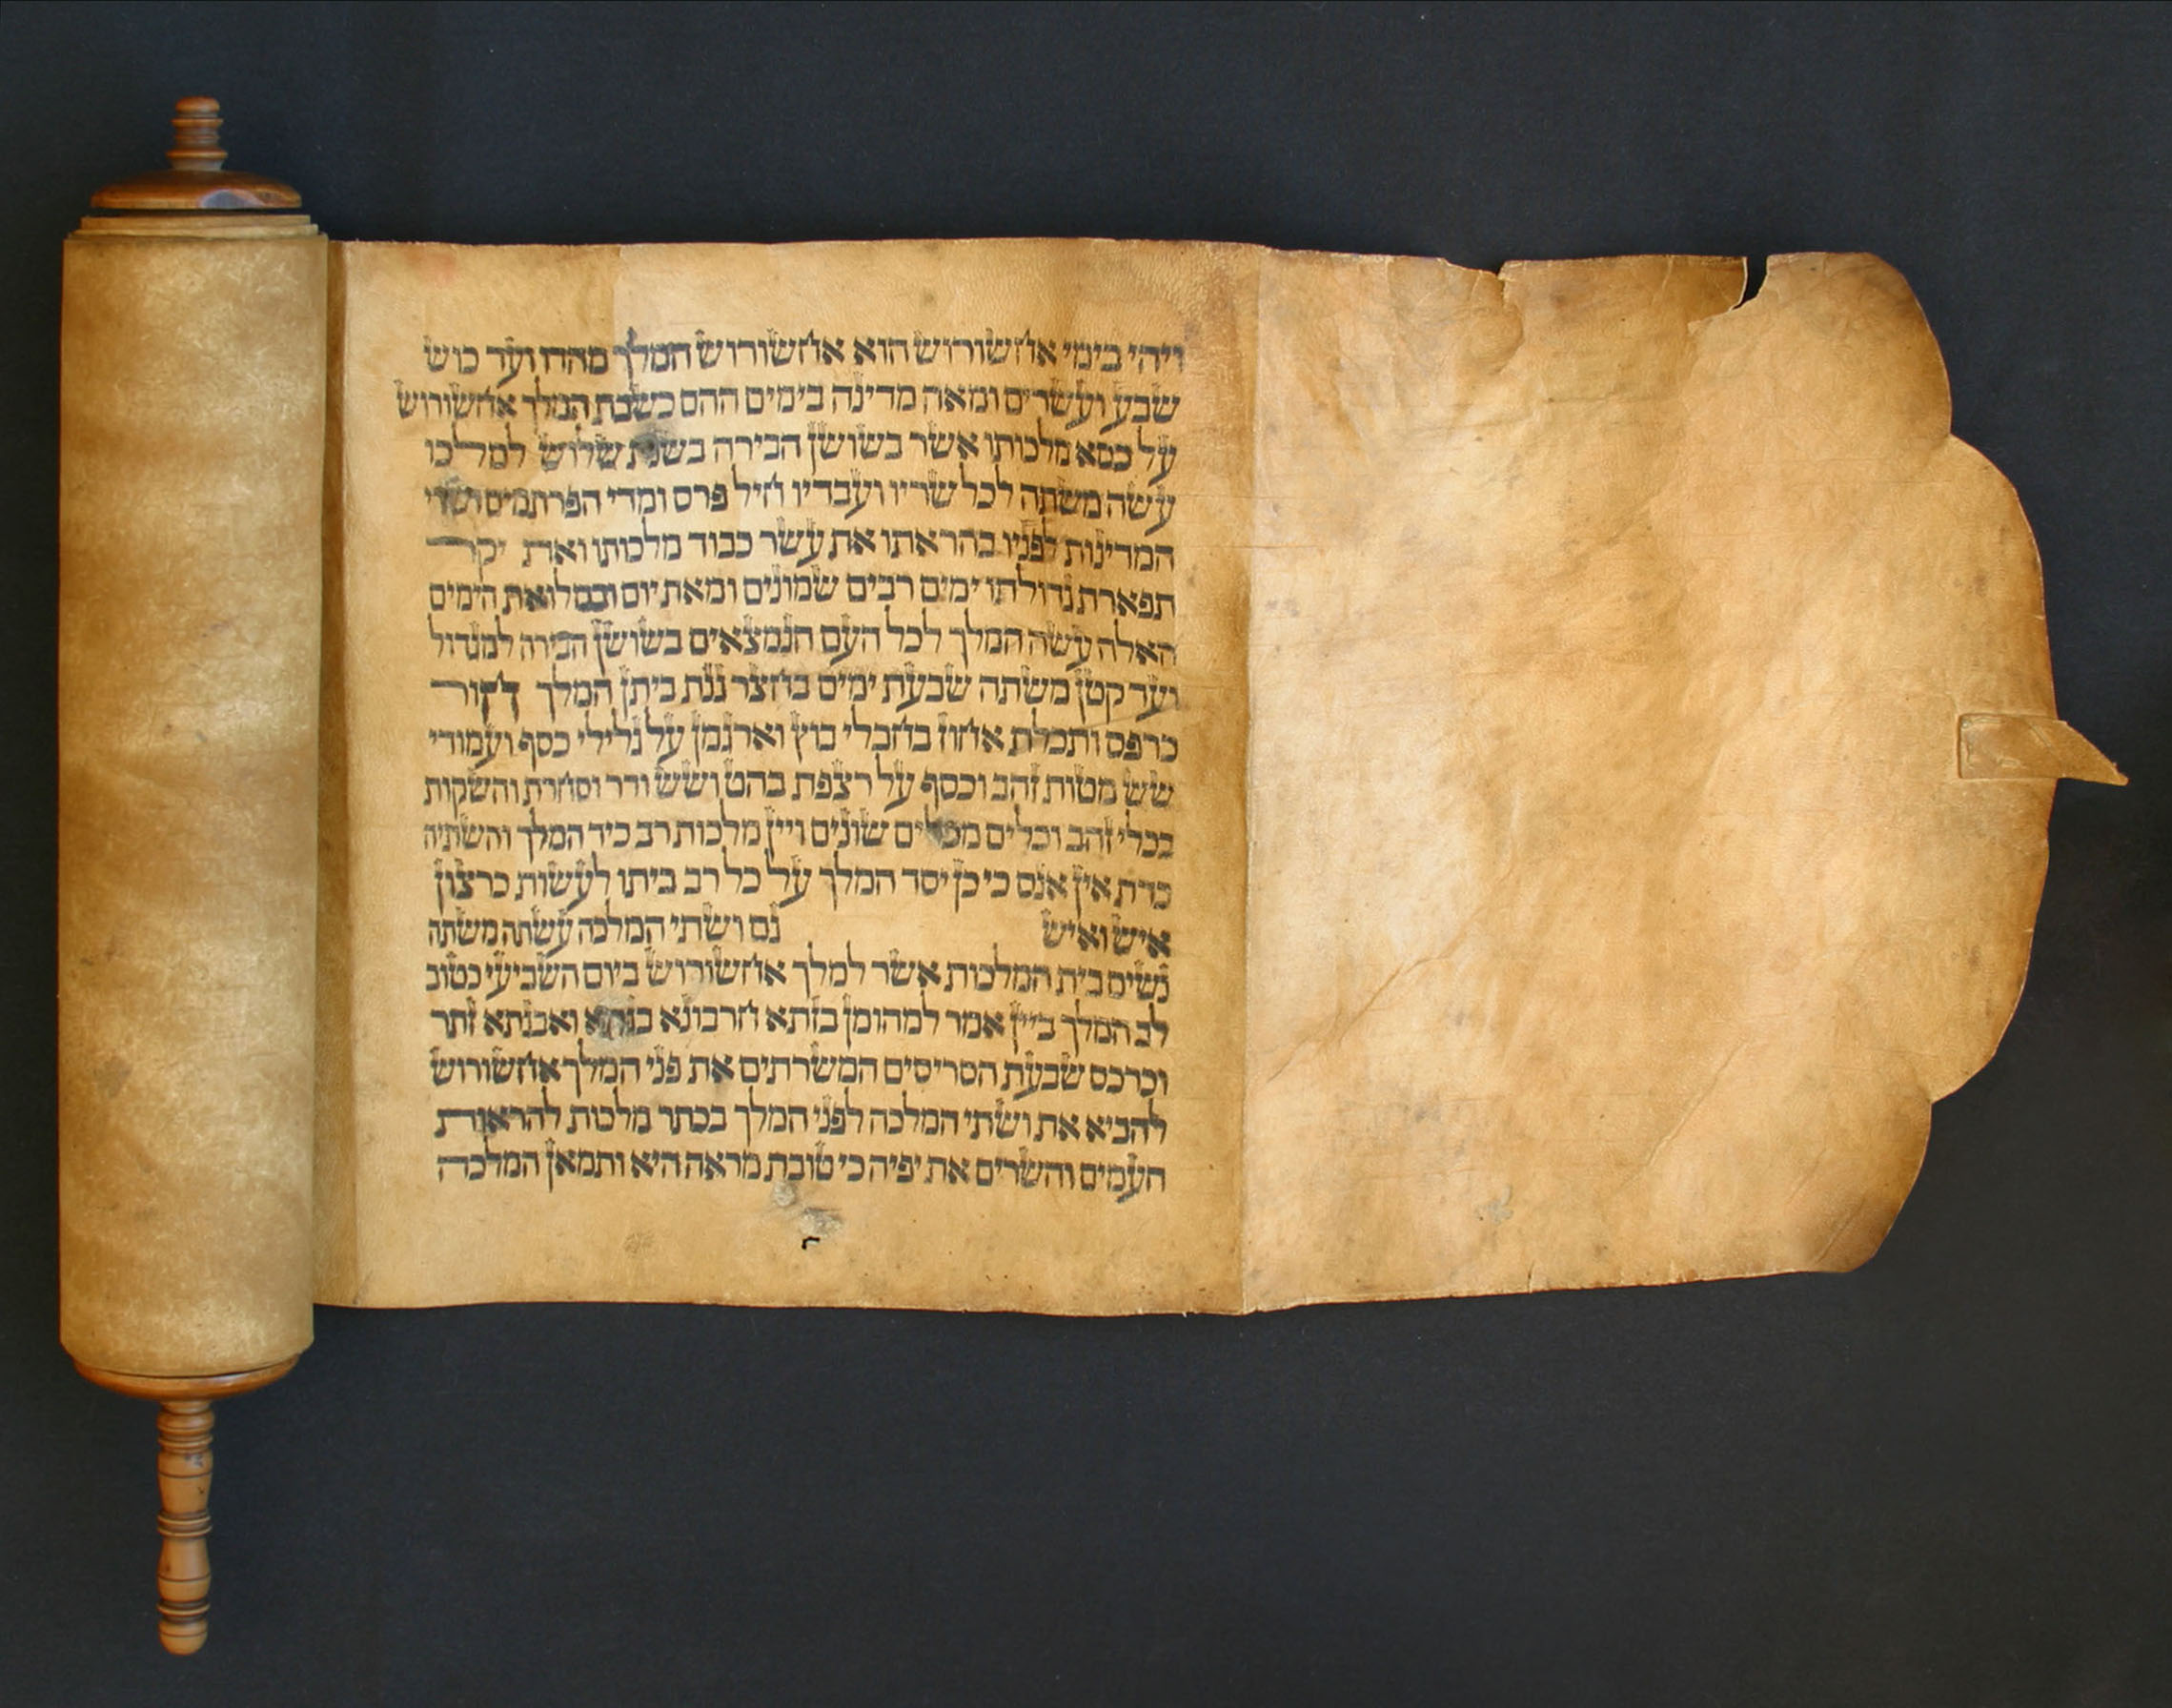 ויהי בימי אחשורוש הוא אחשורוש המלך מהדו ועד כוש
שבע ועשרים ומאה מדינה בימים ההם כשבת המלך אחשורוש
על כסא מלכותו אשר בשושן הבירה בשנת שלוש למלכו
עשה משתה לכל שריו ועבדיו חיל פרס ומדי הפרתמים ושרי
המדינות לפניו בהראתו את עשר כבוד מלכותו ואת יקר
תפארת גדולתו ימים רבים שמונים ומאת יום ובמלואת הימים
האלה עשה המלך לכל העם הנמצאים בשושן הבירה למגדול
ועד קטן משתה שבעת ימים בחצר גנת ביתן המלך חור
כרפס ותכלת אחוז בחבלי בוץ וארגמן על גלילי כסף ועמודי
שש מטות זהב וכסף על רצפת בהט ושש ודר וסחרת והשקות
בכלי זהב וכלים מכלים שונים ויין מלכות רב כיד המלך והשתיה
כדת אין אנס כי כן יסד המלך על כל רב ביתו לעשות כרצון
איש ואיש גם ושתי המלכה עשתה משתה
נשים בית המלכות אשר למלך אחשורוש ביום השביעי כטוב
לב המלך ביין אמר למהומן בזתא חרבונא בגתא ואבגתא זתר
וכרכס שבעת הסריסים המשרתים את פני המלך אחשורוש
להביא את ושתי המלכה לפני המלך בכתר מלכות להראות
העמים והשרים את יפיה כי טובת מראה היא ותמאן המלכה